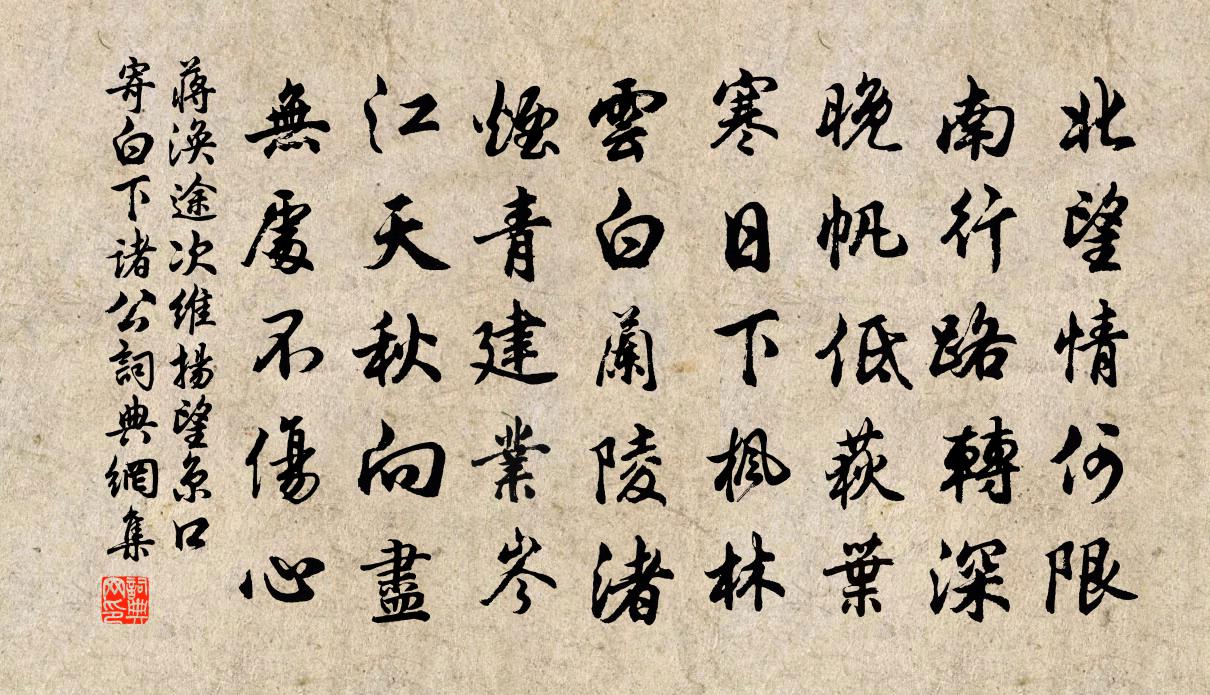 北望情何限
南行路轉深
晚帆低荻葉
寒日下楓林
雲白蘭陵渚
煙青建業岑
江天秋向盡
無處不傷心
蔣渙途次維揚望京口
寄白下諸公詞典網集
詞典網印